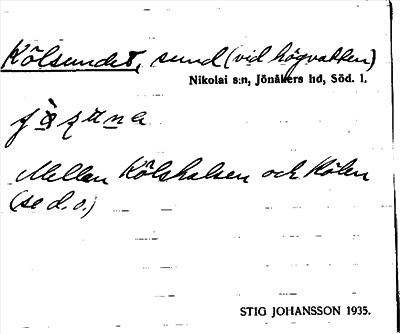 Kölsundet, sund (vid högvatten)
Nikolai s:n, Jönåkers hd, Söd. l.
Mellan Kölshalsen och Kölen
(se d.o.)
STIG JOHANSSON 1935.